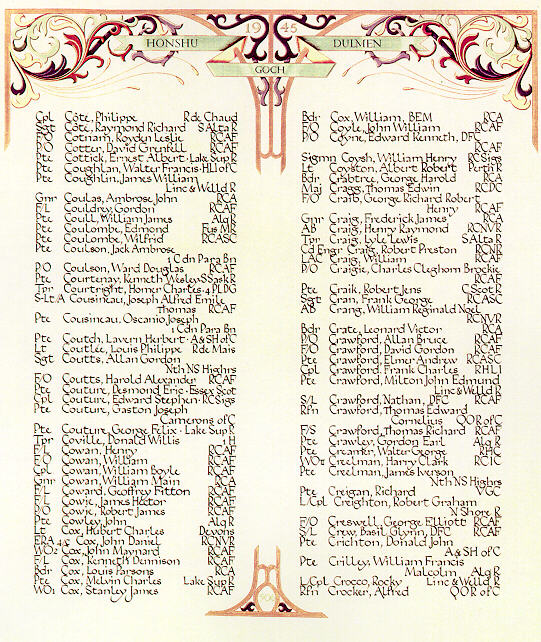 HONSHU 1945 DULMEN
GOCH
Cpl Côté, Philippe R de Chaud
Sgt Côté, Raymond Richard S Alta R
F/O Cotnam, Royden Leslie RCAF
P/O Cotter, David Grenfell RCAF
Pte Cottick, Ernest Albert · Lake Sup R
Pte Coughlan, Walter Francis · HLI of C
Pte Coughlin, James William
Linc & Welld R
Gnr Coulas, Ambrose John RCA
F/L Couldrey, Gordon RCAF
Pte Coull, William James Alq R
Pte Coulombe, Edmond Fus MR
Pte Coulombe, Wilfrid RCASC
Pte Coulson, Jack Ambrose
1 Cdn Para Bn
P/O Coulson, Ward Douglas RCAF
Pte Courtenay, Kenneth Wesley · S Sask R
Tpr Courtright, Homer Charles · 4 PLDG
S-Lt/A Cousineau, Joseph Alfred Emile
Thomas RCAF
Pte Cousineau, Oscanio Joseph
1 Cdn Para Bn
Pte Coutch, Lavern Herbert · A & SH of C
Lt Coutlée, Louis Philippe R de Mais
Sgt Coutts, Allan Gordon
Nth NS Highrs
F/O Coutts, Harold Alexander RCAF
Pte Couture, Desmond Eric · Essex Scot
Cpl Couture, Edward Stephen · RCSigs
Pte Couture, Gaston Joseph
Camerons of C
Pte Couture, George Felix · Lake Sup R
Tpr Coville, Donald Willis 1 H
F/L Cowan, Henry RCAF
F/O Cowan, William RCAF
Cpl Cowan, William Boyle RCAF
Gnr Cowan, William Main RCA
F/L Coward, Geoffrey Fitton RCAF
F/L Cowie, James Hector RCAF
P/O Cowie, Robert James RCAF
Pte Cowley, John Alq R
Lt Cox, Hubert Charles Devons
ERA 4c Cox, John Daniel RCNVR
WO2 Cox, John Maynard RCAF
F/L Cox, Kenneth Dennison RCAF
Bdr Cox, Louis Parsons RCA
Pte Cox, Melvin Charles Lake Sup R
WO1 Cox, Stanley James RCAF
Bdr Cox, William, BEM RCA
F/O Coyle, John William RCAF
P/O Coyne, Edward Kenneth, DFC
RCAF
Sigmn Coysh, William Henry RCSigs
Lt Coyston, Albert Robert Perth R
Bdr Crabtree, George Harold RCA
Maj Cragg, Thomas Edwin RCDC
F/O Craib, George Richard Robert
Henry RCAF
Gnr Craig, Frederick James RCA
AB Craig, Henry Raymond RCNVR
Tpr Craig, Lyle Lewis S Alta R
Cd Engr Craig, Robert Preston RCNR
LAC Craig, William RCAF
P/O Craigie, Charles Cleghorn Brockie
RCAF
Pte Craik, Robert Jens C Scot R
Sgt Cran, Frank George RCASC
AB Crang, William Reginald Noel
RCNVR
Bdr Crate, Leonard Victor RCA
P/O Crawford, Allan Bruce RCAF
F/O Crawford, David Gordon RCAF
Pte Crawford, Elmer Andrew RCASC
Cpl Crawford, Frank Charles RHLI
Pte Crawford, Milton John Edmund
Linc & Welld R
S/L Crawford, Nathan, DFC RCAF
Rfn Crawford, Thomas Edward
Cornelius QOR of C
F/S Crawford, Thomas Richard RCAF
Pte Crawley, Gordon Earl Alq R
Pte Creamer, Walter George RHC
WO2 Creelman, Harry Clark RCIC
Pte Creelman, James Iverson
Nth NS Highrs
Pte Creigan, Richard VGC
L/Cpl Creighton, Robert Graham
N Shore R
F/O Creswell, George Elliott RCAF
S/L Crew, Basil Glynn, DFC RCAF
Pte Crichton, Donald John
A & SH of C
Pte Crilley, William Francis
Malcolm Alq R
L/Cpl Crocco, Rocky Linc & Welld R
Rfn Crocker, Alfred QOR of C